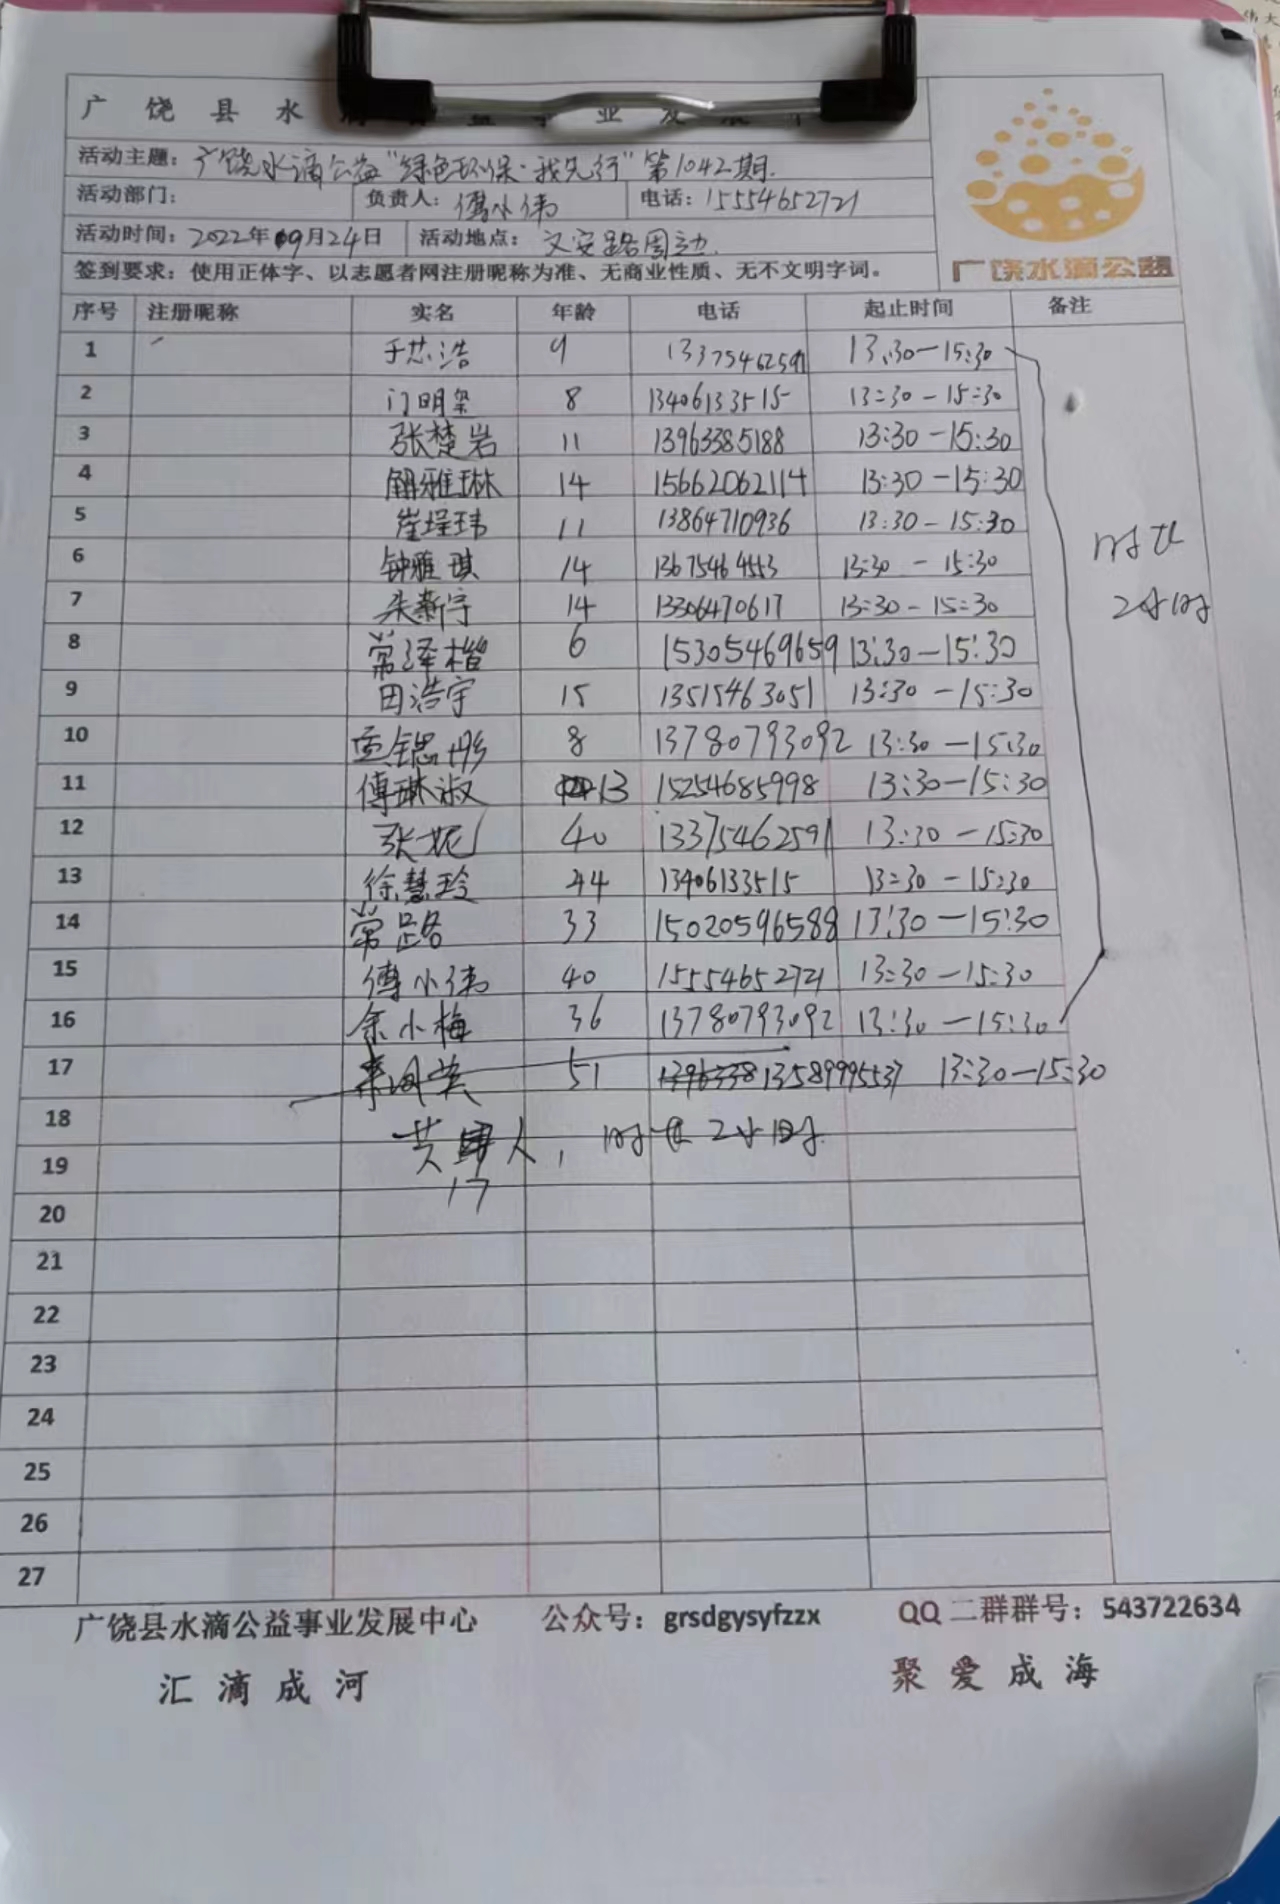 广 饶 县 水 益 事 业 发 展
活动主题：广饶水滴公益“绿色环保·我先行”第1042期.
活动部门： 负责人：傅小伟 电话：15554652721
活动时间：2022年09月24日 活动地点：文安路周边.
签到要求：使用正体字、以志愿者网注册昵称为准、无商业性质、无不文明字词。
广饶水滴公益
序号 注册昵称 实名 年龄 电话 起止时间 备注
1 于芯浩 9 13375462591 13:30—15:30
2 门明玺 8 13406133515 13:30—15:30
3 张楚岩 11 13963385188 13:30—15:30
4 解雅琳 14 15662062114 13:30—15:30
5 崔埕玮 11 13864710936 13:30—15:30
6 钟雅琪 14 13675464553 13:30—15:30
7 朱新宇 14 13306470617 13:30—15:30
8 常泽楷 6 15305469659 13:30—15:30
9 田浩宇 15 13515463051 13:30—15:30
10 孟锶彤 8 13780793092 13:30—15:30
11 傅琳淑 13 15254685998 13:30—15:30
12 张妮 40 13375462591 13:30—15:30
13 徐慧玲 44 13406133515 13:30—15:30
14 常路 33 15020596588 13:30—15:30
15 傅小伟 40 15554652721 13:30—15:30
16 余小梅 36 13780793092 13:30—15:30
时长
2小时
17 51 13589995537 13:30—15:30
18 共 人，时长2小时.
17
19
20
21
22
23
24
25
26
27
广饶县水滴公益事业发展中心 公众号：grsdgysyfzzx QQ二群群号：543722634
汇 滴 成 河 聚 爱 成 海